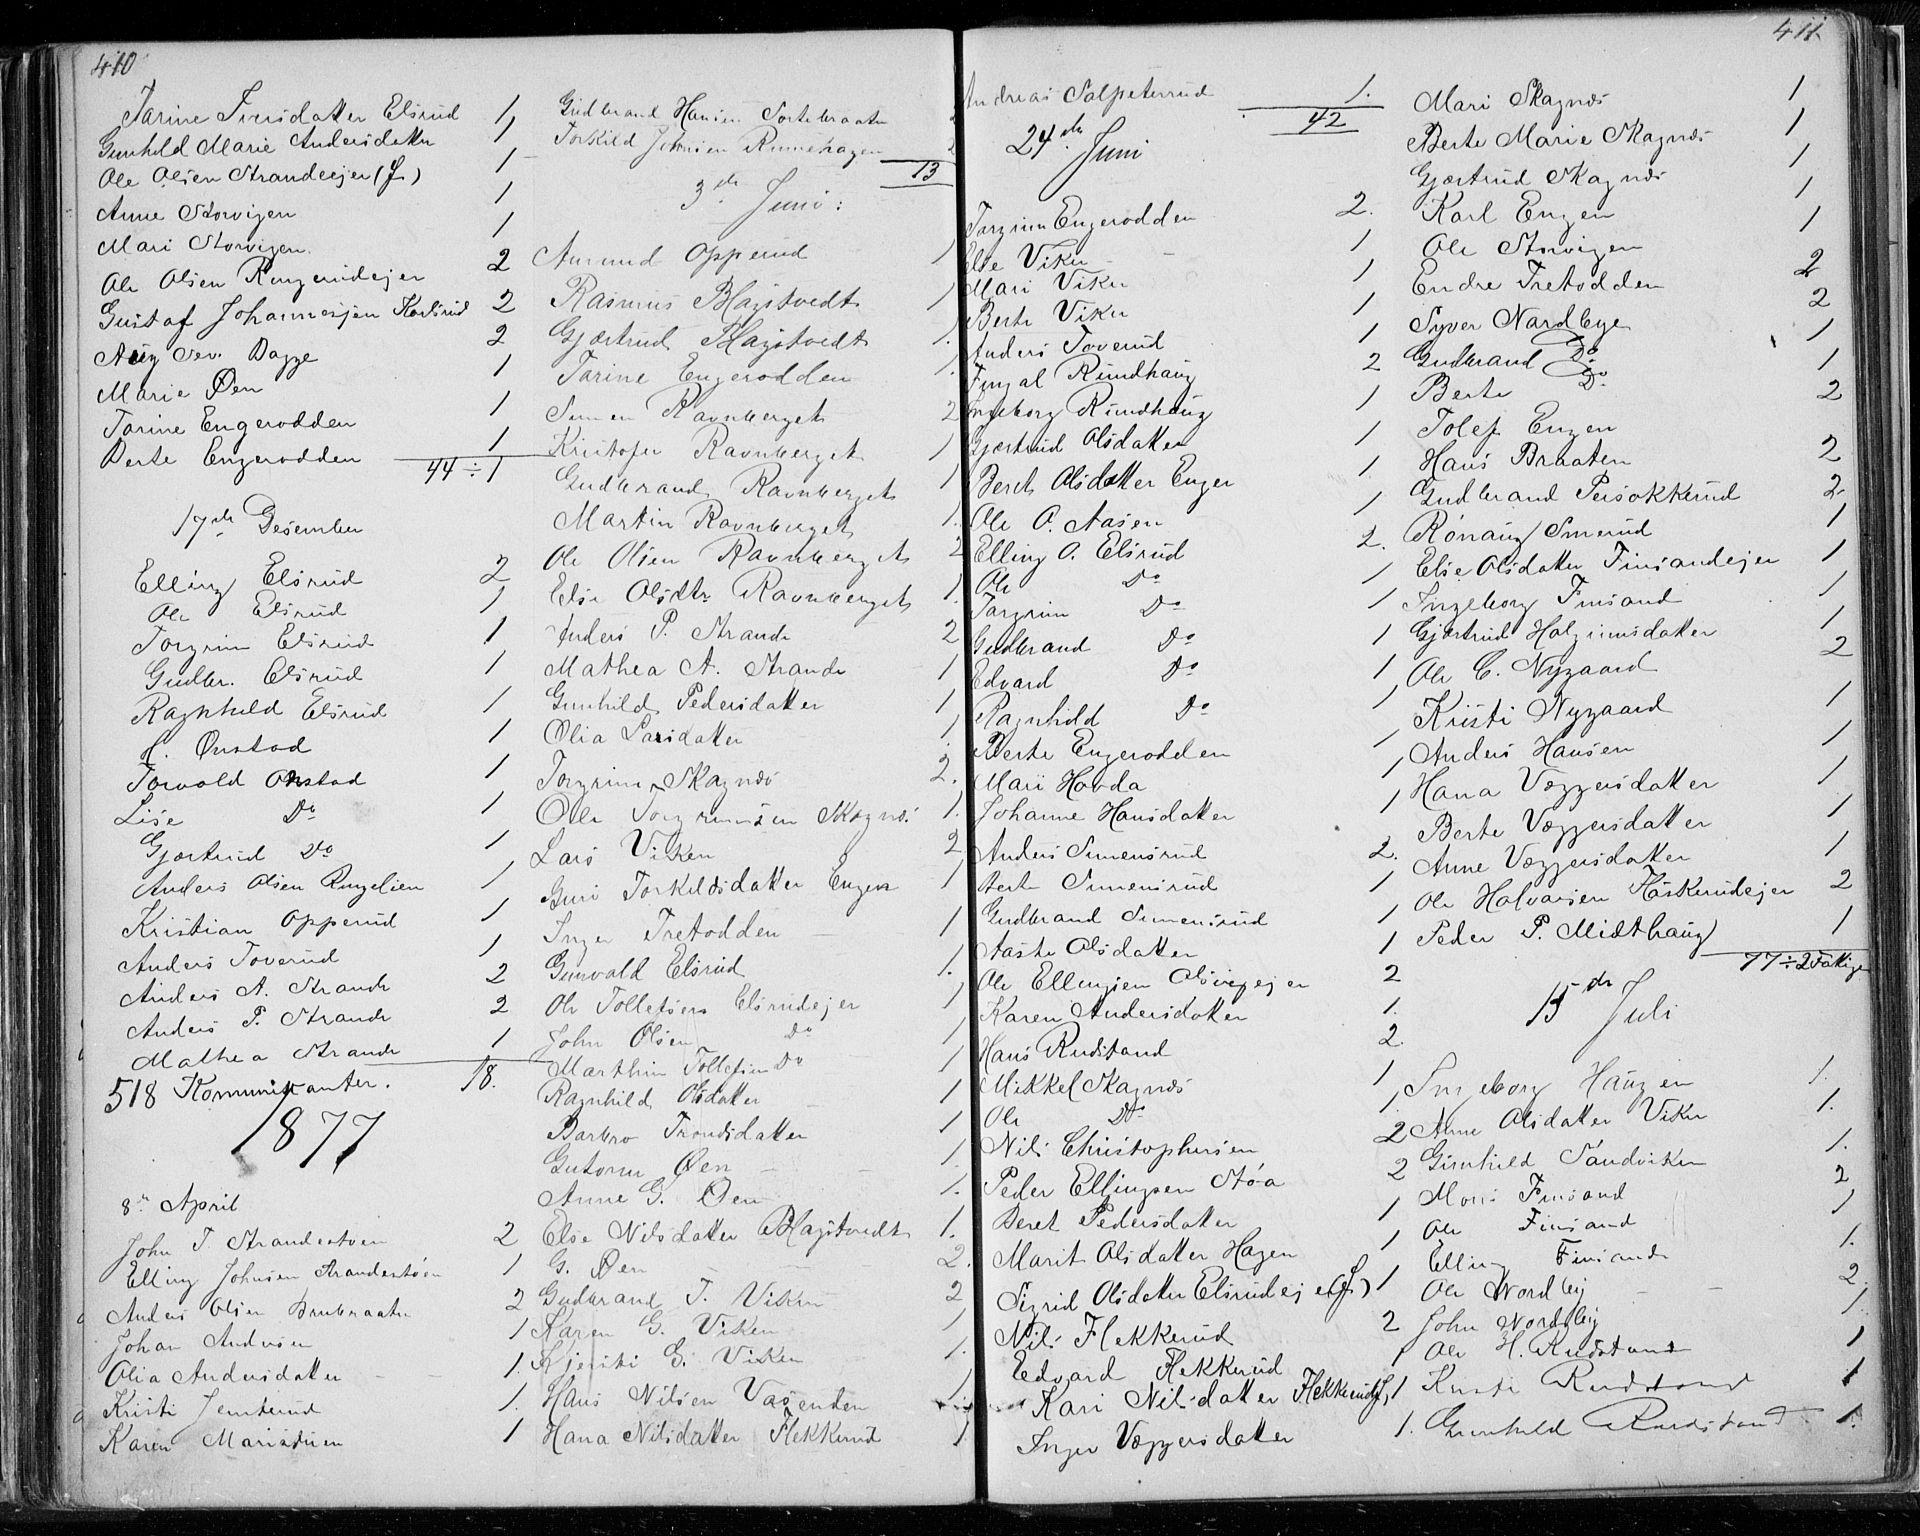 410
Tarine Iversdatter Elsrud 1
Gunhild Marie Andersdatter 1
Ole Olsen Strandeejer (J) 1
Anne Storvigen 1
Mari Storvigen 1
Ole Olsen Ringerudejer 2
Gustaf Johannesjen Karlsrud 2
Aug Sev. Dagge 2
Marie Øen 1
Tarine Engerodden 1
Berte Engerodden 1
44 ÷ 1
17de Desember
Elling Elsrud 2
Ole Elsrud 1
Torgrim Elsrud 1
Gudbr. Elsrud 1
Ragnhild Elsrud 1
Onstad 1
Torvald Onstad 1
Lise Do 1
Gjærtrud Do 1
Anders Olsen Ringelien 1
Kristian Opperud 1
Anders Toverud 1
Anders A. Strande 2
Anders P. Strande 2
Mathea Strande 1
518 Kommunikanter. 18.
1877
8de April
John T. Strandestøen 2
Elling Johnsen Strandestøen 1
Anders Olsen Brubraaten 2
Johan Andersen 1
Olia Andersdatter 1.
Kristi Jemterud 1.
Karen Maristuen 1
Gudbrand Hansen Sortebraaten
Torkild Johnsen Runnehagen
13
3de Juni:
Amund Opperud 1
Rasmus Blagstvedt 1
Gjærtrud Blagstvedt 1.
Tarine Engerodden 1.
Simen Ravnberget 2
Kristofer Ravnberget 1
Gudbrand Ravnberget 1
Martin Ravnberget 1.
Ole Olsen Ravnberget 2
Else Olsdtr Ravnberget 1.
Anders P. Strande 2
Mathea A. Strande 1
Gunhild Pedersdatter 1
Olia Larsdatter 1
Torgrim Skagnæs 2.
Ole Torgrimsen Skagnæs 1.
Lars Viken 2
Guri Torkeldsdatter Engen 1
Inger Tretodden 1
Gunvald Elsrud 1.
Ole Tollefsen Elsrudejer 1
John Olsen Do 1
Marthin Tollefsen Do 1
Ragnhild Olsdatter 1
Barbro Trondsdatter 1
Gutorm Øen 1
Anne G. Øen 1.
Else Nilsdatter Blagstvedt 1.
G. Øen 2.
Gudbrand T. Viken 2
Karen G. Viken 1
Kjersti G. Viken 1.
Hans Nilsen Vasenden 1
Hana Nilsdatter Flekkerud 1
411
Andreas Salpeterrud 1.
42
24de Juni
Torgrim Engerodden 2.
Else Viken 1
Mari Viken 1
Berte Viken 1
Anders Toverud 1
Fingal Rundhaug 2
Ingeborg Rundhaug 1
Gjærtrud Olsdatter 1
Beret Olsdatter Enger 1
Ole O. Aasen 1
Elling O. Elsrud 2.
Ole Do 1
Torgrim Do 1
Gudbrand Do 1
Edvard Do 1
Ragnhild Do 1
Berte Engerodden 1
Mari Hovda 1
Johanne Hansdatter 1
Anders Simensrud 2.
Berte Simensrud 1
Gudbrand Simensrud 1
Aaste Olsdatter 1
Ole Ellingsen Olsvigejer 2
Karen Andersdatter 1.
Hans Rudstand 2.
Mikkel Skagnæs 1
Ole Do 1
Nils Christophersen 2
Peder Ellingsen Støa 2
Beret Pedersdatter 1
Marit Olsdatter Hagen 1
Sigrid Olsdatter Elsrudejer (J) 1
Nils Flekkerud 2
Edvard Flekkerud 1
Kari Nilsdatter Flekkerud 1
Inger Væggersdatter 1.
Mari Skagnæs 1
Berte Marie Skagnæs 1
Gjærtrud Skagnæs 1
Karl Engen 1
Ole Storvigen 1
Endre Tretodden 2
Syver Nordbye 2
Gudbrand Do 1
Berte Do 1
Tolef Engen 2
Hans Braaten 2
Gudbrand Persøkkerud 2
Rønaug Smerud 1
Else Olsdatter Finsandejer 1
Ingeborg Finsand 1
Gjærtrud Halgrimsdatter 1
Ole C. Nygaard 2
Kristi Nygaard 1
Anders Hansen 1
Hana Væggersdatter 1
Berte Væggersdatter 1
Anne Væggersdatter 1
Ole Halvorsen Haskerudejer 2
Peder P. Midthaug 1
77 ÷ 2 Fattige
15de Juli
Ingeborg Haugen 1.
Anne Olsdatter Viken 1.
Gunhild Sandviken 1.
Mons Finsand 2
Ole Finsand 1
Elling Finsand 1.
Ole Nordby 2.
John Nordby 1
Ole H. Rudstand 1
Kristi Rudstand 1
Gunhild Rudstand 1.